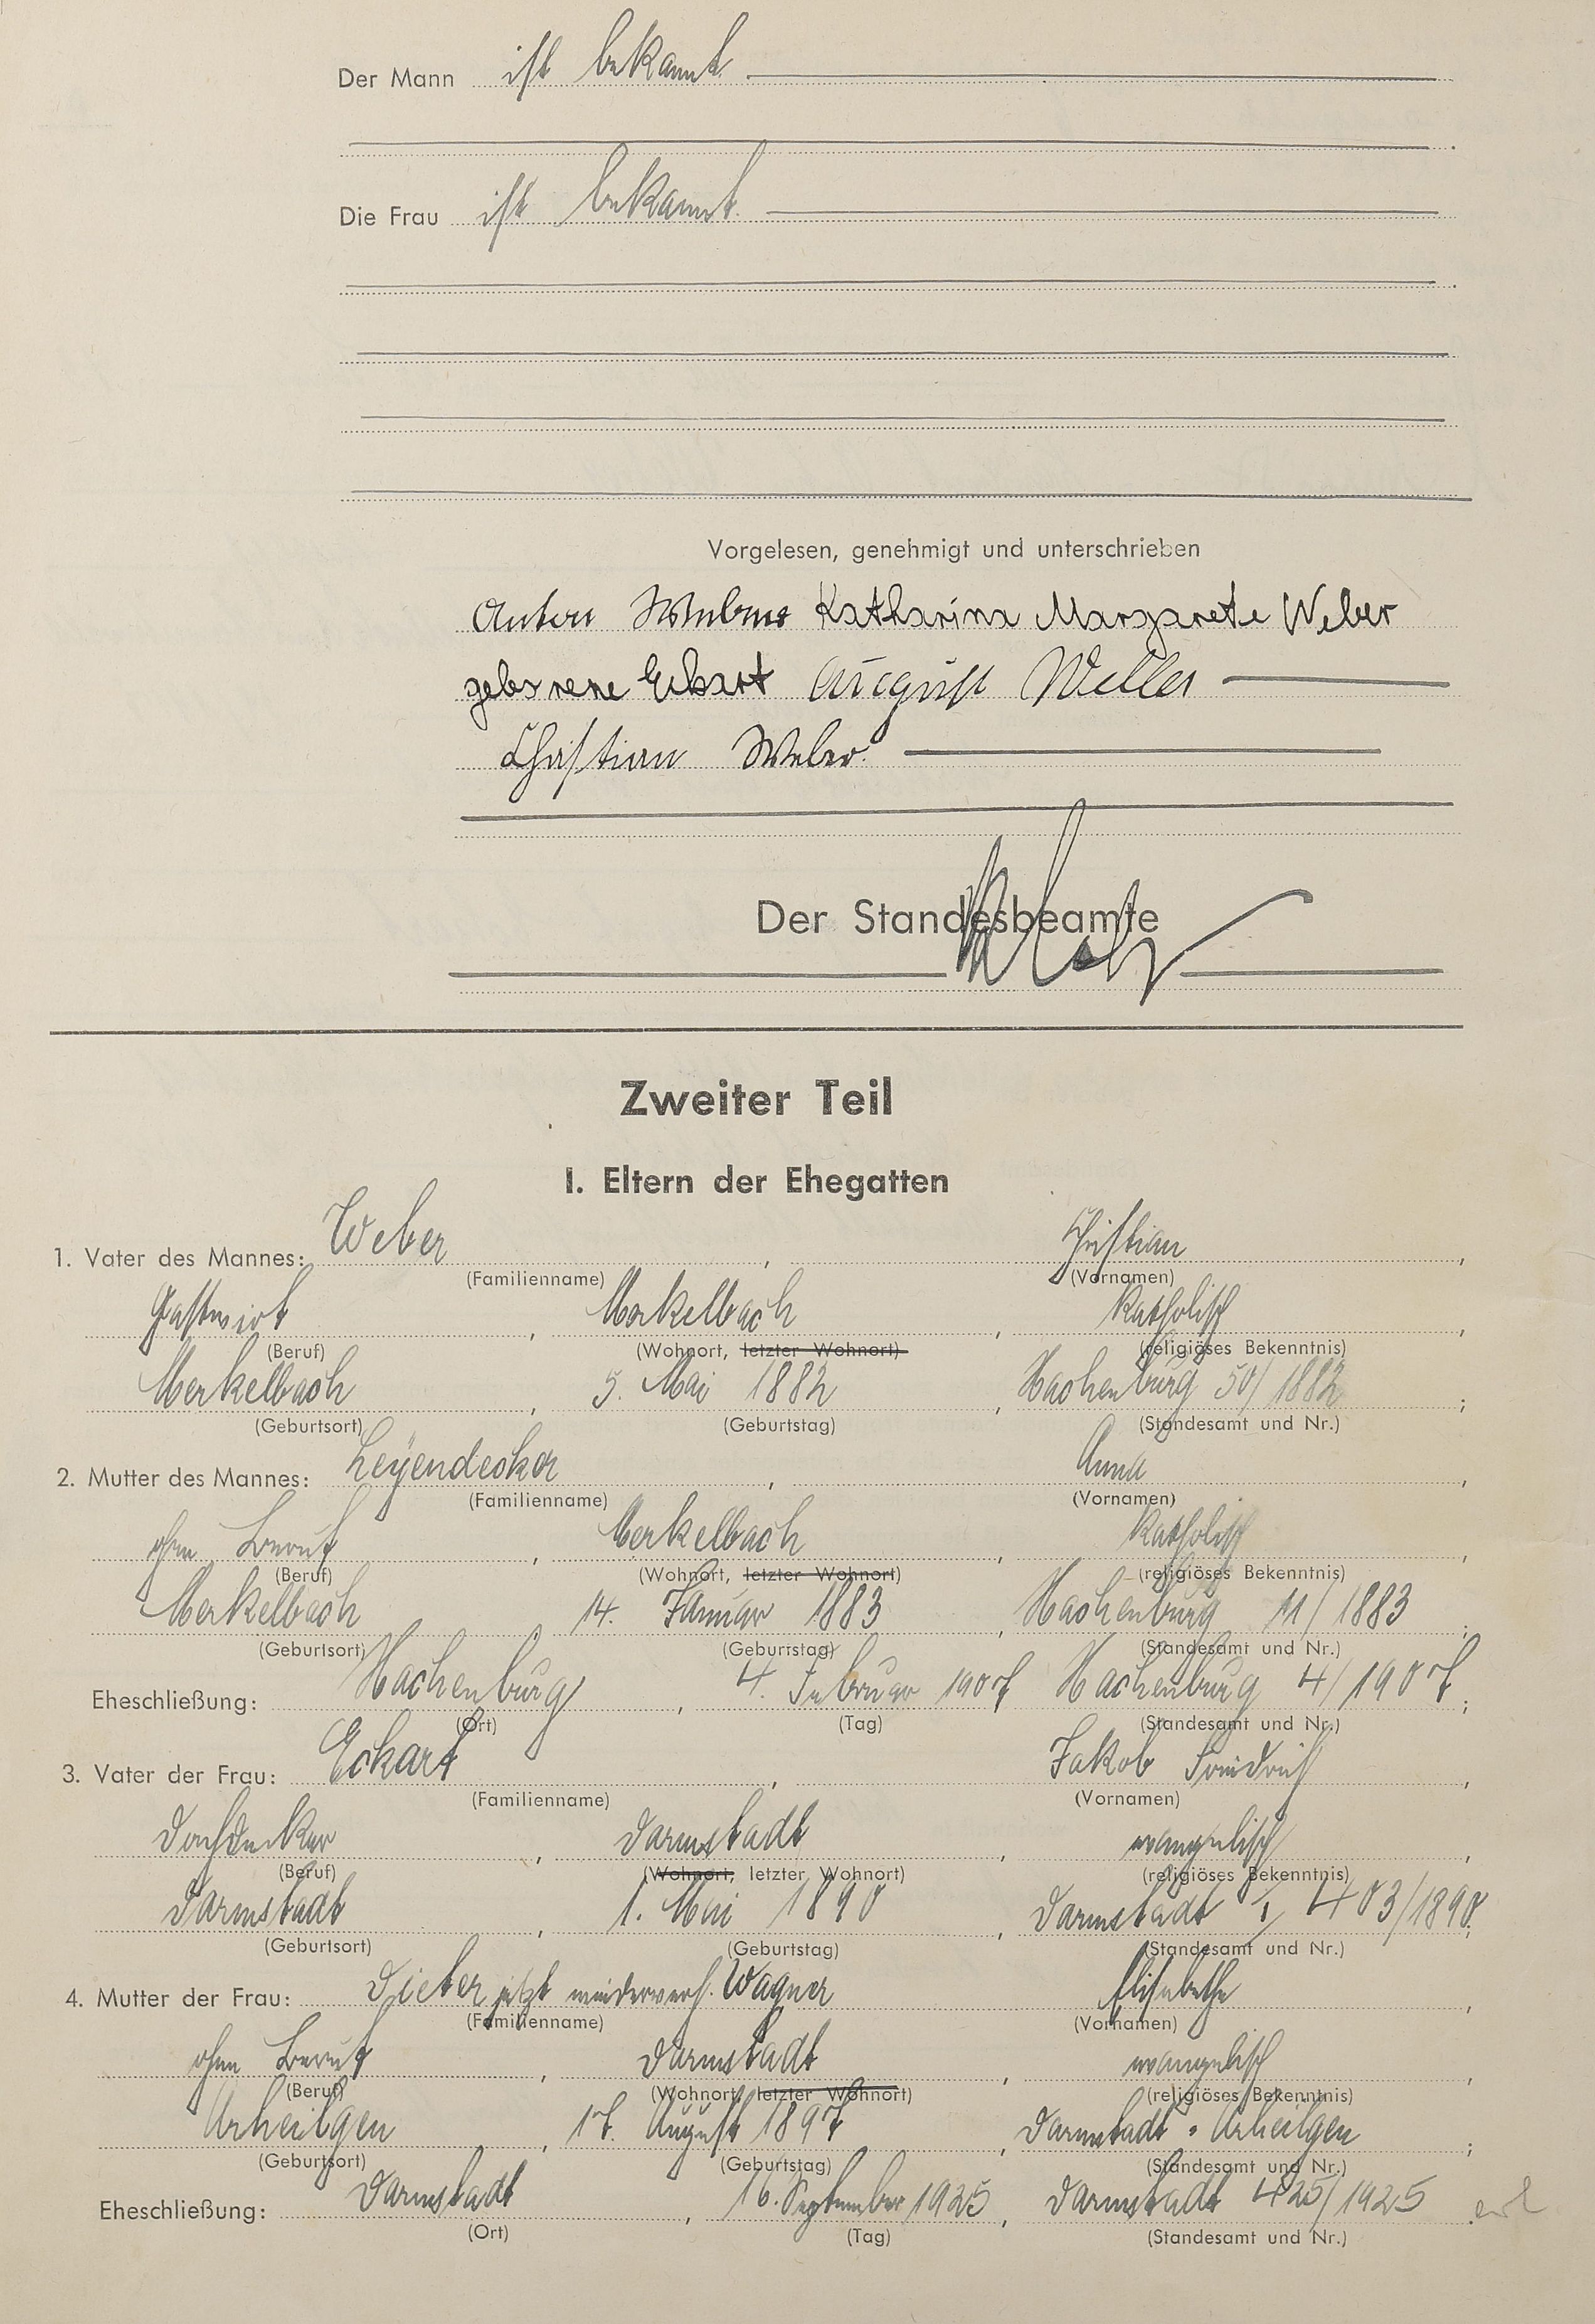 Der Mann ist bekannt.
Die Frau ist bekannt.
Vorgelesen, genehmigt und unterschrieben
Anton Weber Katharina Margarete Weber
geborene Eckart August Weller
Christian Weber.
Der Standesbeamte
Zweiter Teil
I. Eltern der Ehegatten
1. Vater des Mannes: Weber, Christian,
(Familienname) (Vornamen)
Gastwirt, Merkelbach, katholisch,
(Beruf) (Wohnort, letzter Wohnort) (religiöses Bekenntnis)
Merkelbach, 5. Mai 1882, Hachenburg 50/1882;
(Geburtsort) (Geburtstag) (Standesamt und Nr.)
2. Mutter des Mannes: Leyendecker, Anna,
(Familienname) (Vornamen)
ohne Beruf, Merkelbach, katholisch,
(Beruf) (Wohnort, letzter Wohnort) (religiöses Bekenntnis)
Merkelbach, 14. Januar 1883, Hachenburg 11/1883;
(Geburtsort) (Geburtstag) (Standesamt und Nr.)
Eheschließung: Hachenburg, 4. Februar 1907 Hachenburg 4/1907;
(Ort) (Tag) (Standesamt und Nr.)
3. Vater der Frau: Eckart, Jakob Friedrich,
(Familienname) (Vornamen)
Dachdecker, Darmstadt, evangelisch,
(Beruf) (Wohnort, letzter Wohnort) (religiöses Bekenntnis)
Darmstadt, 1. Mai 1890, Darmstadt I, 403/1890.
(Geburtsort) (Geburtstag) (Standesamt und Nr.)
4. Mutter der Frau: Dieter jetzt wiederverh. Wagner Elisabethe,
(Familienname) (Vornamen)
ohne Beruf, Darmstadt, evangelisch,
(Beruf) (Wohnort, letzter Wohnort) (religiöses Bekenntnis)
Arheilgen, 17. August 1897, Darmstadt - Arheilgen;
(Geburtsort) (Geburtstag) (Standesamt und Nr.)
Eheschließung: Darmstadt, 16. September 1925, Darmstadt 425/1925.
(Ort) (Tag) (Standesamt und Nr.)